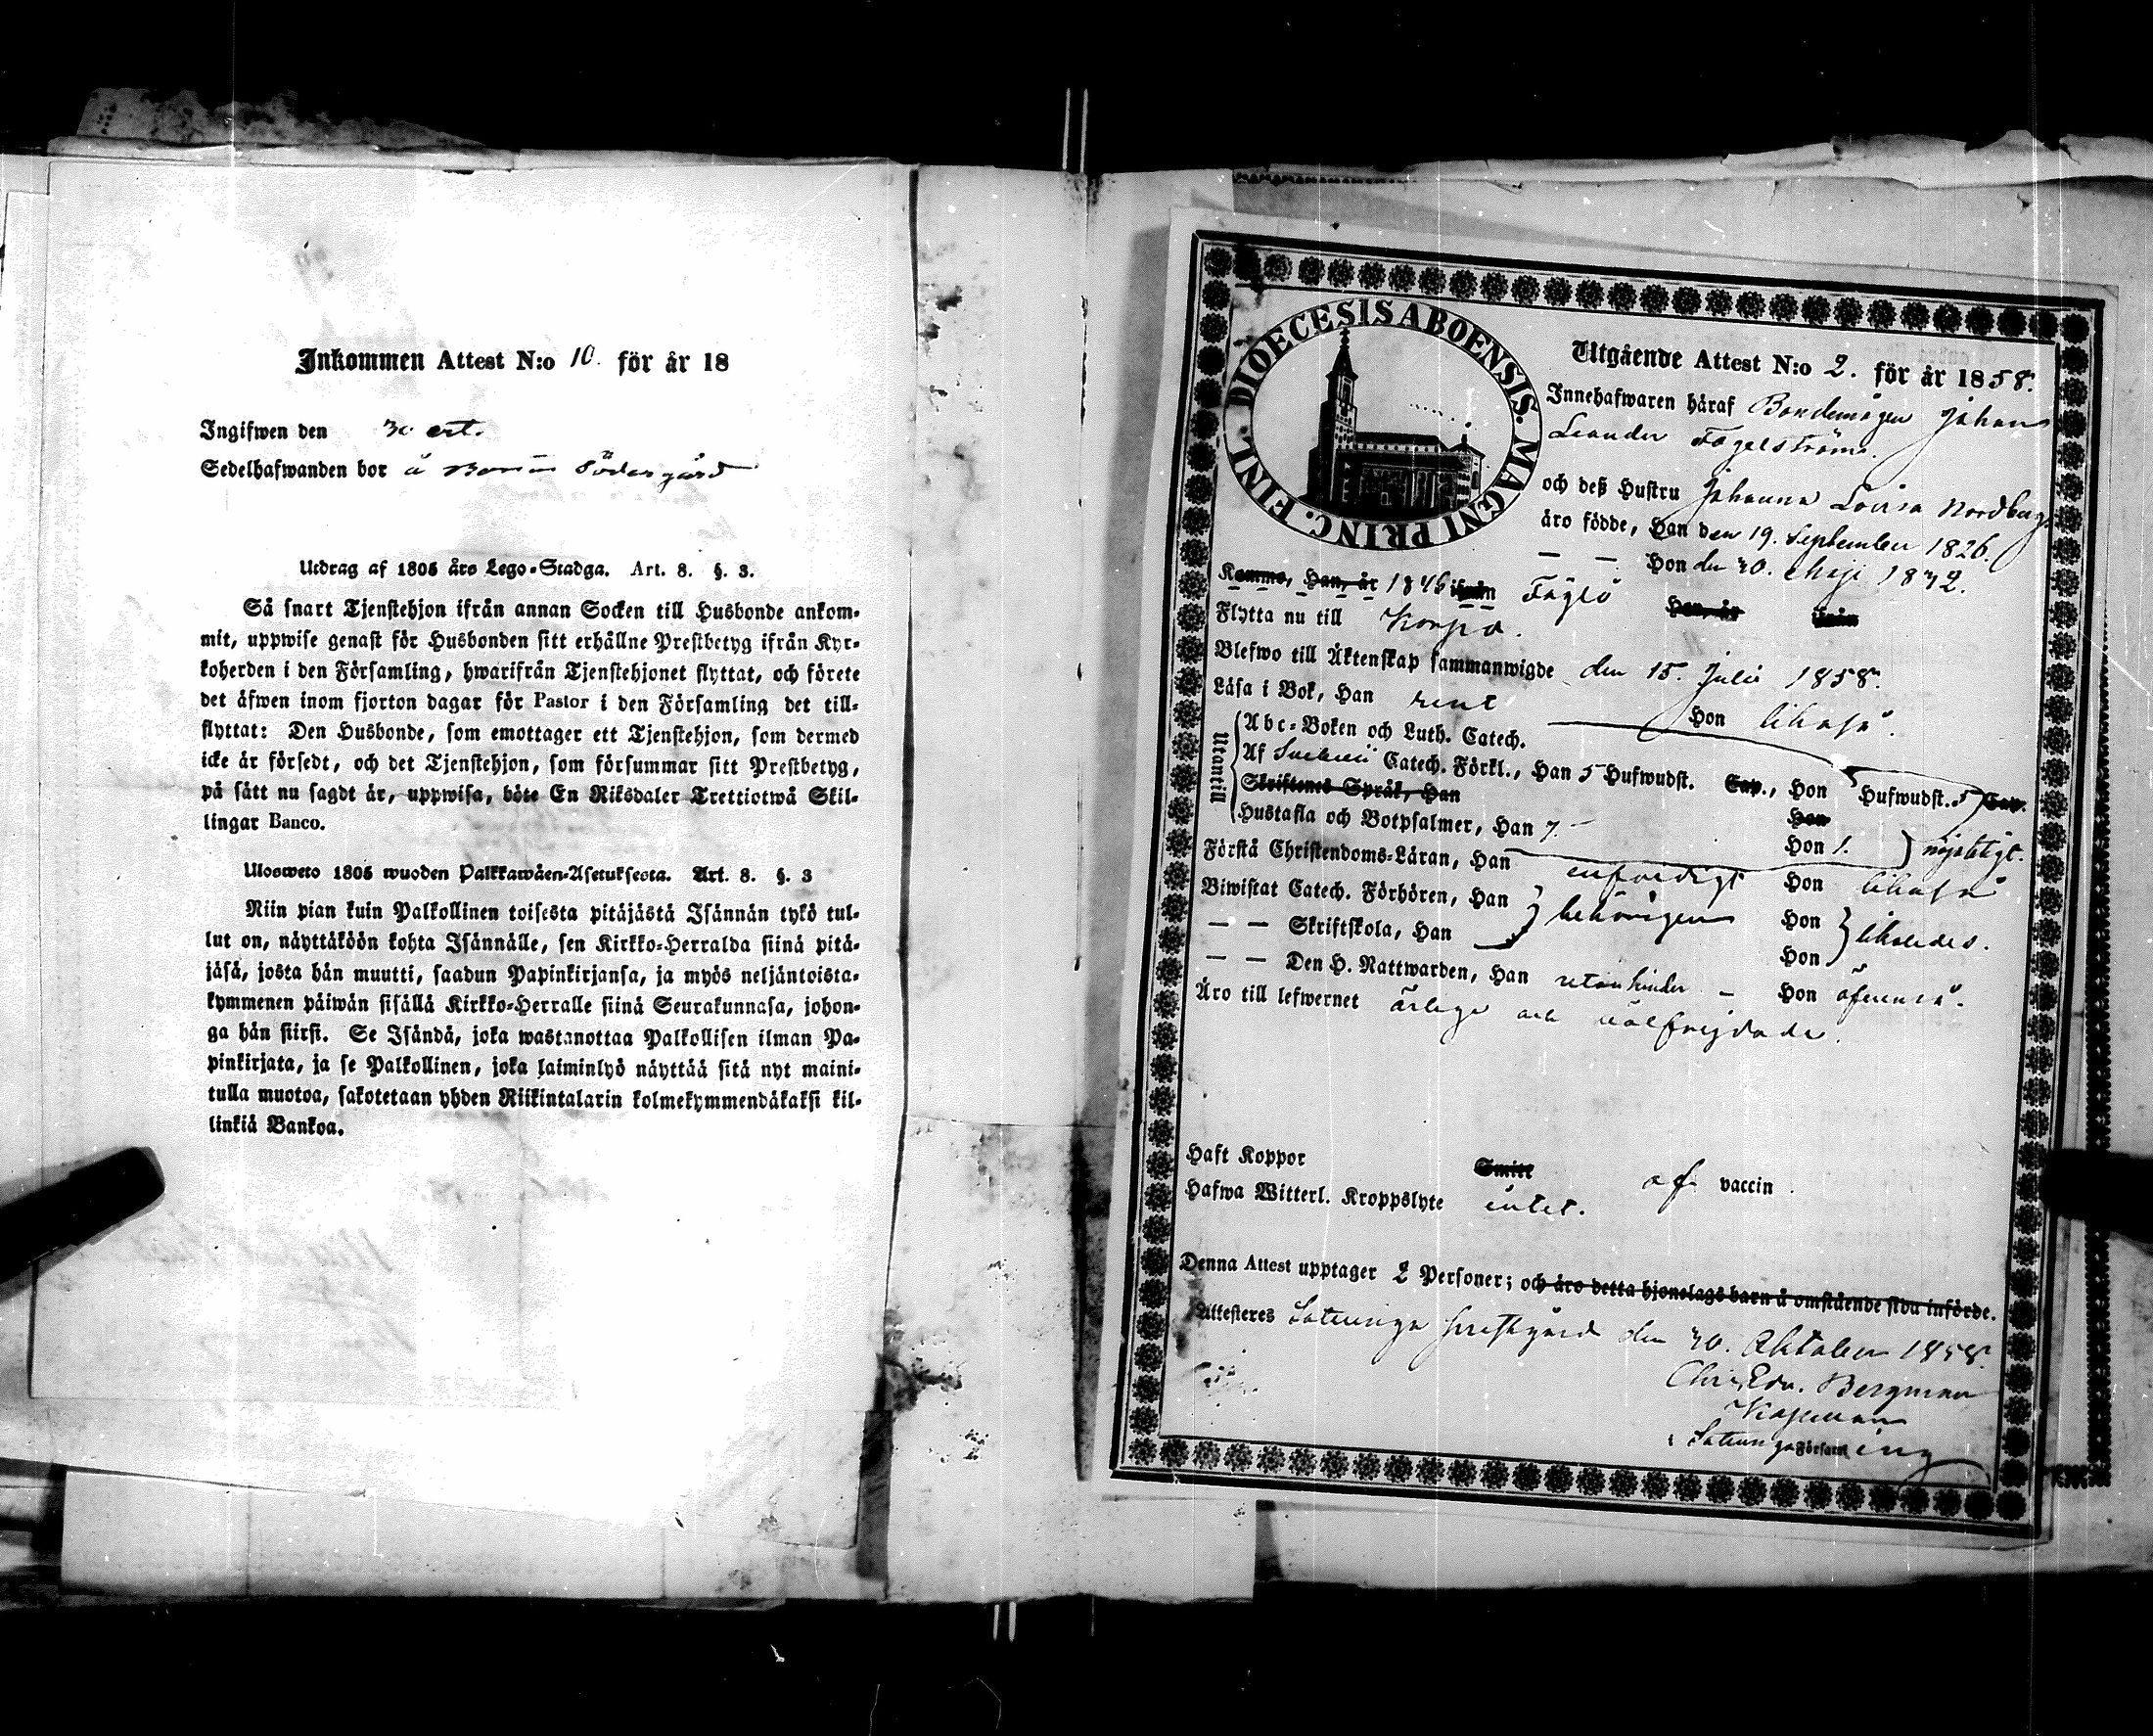 Inkommen Attest N:o 10. för år 18
Ingifwen den
Sedelhafwanden bor å Södergård
Utdrag af 1805 års Lego-Stadga. Art. 8. §. 3.
Så snart Tjenstehjon ifrån annan Socken till Husbonde ankom-
mit, uppwise genast för Husbonden sitt erhållne Prestbetyg ifrån Kyr-
koherden i den Församling, hwarifrån Tjenstehjonet flyttat, och förete
det äfwen inom fjorton dagar för Pastor i den Församling det till-
flyttat: Den Husbonde, som emottager ett Tjenstehjon, som dermed
icke är försedt, och det Tjenstehjon, som försummar sitt Prestbetyg,
på sätt nu sagdt är, uppwisa, böte En Riksdaler Trettiotwå Skil-
lingar Banco.
Ulosweto 1805 wuoden Palkkawäen-Asetuksesta. Art. 8. §. 3
Niin pian kuin Palkollinen toisesta pitäjästä Isännän tykö tul-
lut on, näyttäköön kohta Isännälle, sen Kirkko-Herralda siinä pitä-
jäsä, josta hän muutti, saadun Papinkirjansa, ja myös neljäntoista-
kymmenen päiwän sisällä Kirkko-Herralle siinä Seurakunnasa, johon-
ga hän siirsi. Se Isändä, joka wastanottaa Palkollisen ilman Pa-
pinkirjata, ja se Palkollinen, joka laiminlyö näyttää sitä nyt maini-
tulla muotoa, sakotetaan yhden Riikintalarin kolmekymmendäkaksi kil-
linkiä Bankoa.
DIOECESIS ABOENSIS. MAGNI PRINC. FINL.
Utgående Attest N:o 2. för år 1858.
Innehafwaren häraf Johan
Leander Fagerström.
och deß Hustru Johanna Lovisa Nordberg
äro födde, Han den 19. September 1826.
— — Hon den 30. Maji 1832.
Kommo, Han, år 1846 ifrån Föglö Hon, år ifrån
Flytta nu till Korpo.
Blefwo till Äktenskap sammanwigde den 15. Julii 1858.
Läsa i Bok, Han rent Hon likaså.
Utantill
Abc-Boken och Luth. Catech.
Af Svebelii Catech. Förkl., Han 5 Hufwudst. Cap., Hon Hufwudst. 5 Cap.
Skriftenes Språk, Han Hon
Hustafla och Botpsalmer, Han 7. Hon 1. nöjaktigt.
Förstå Christendoms-Läran, Han enfaldigt Hon likaså
Biwistat Catech. Förhören, Han behörigen Hon likaledes.
— — Skriftskola, Han Hon
— — Den H. Nattwarden, Han utan hinder — Hon äfvenså.
Äro till lefwernet ärlige och välfrejdade.
Haft Koppor Smitt af vaccin
Hafwa Witterl. Kroppslyte intet.
Denna Attest upptager 2 Personer; och äro detta hjonelags barn å omstående sida införde.
Attesteres Sottunga prestgård den 30. Oktober 1858.
Chr. Edv. Bergman
Kapellan
i Sottunga Församling